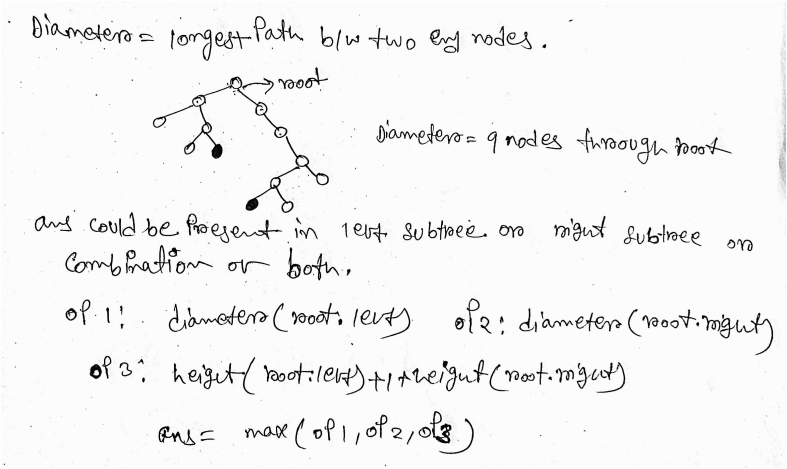 Diameter = longest Path b/w two end nodes.
root
Diameter = 9 nodes through root
ans could be Present in left subtree or right subtree or
Combination of both.
op 1: diameter(root.left) op2: diameter(root.right)
op 3: height(root.left)+1+height(root.right)
ans = max(op1, op2, op3)